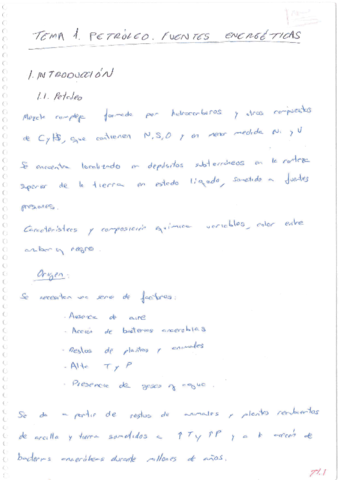 TEMA 1. PETRÓLEO. FUENTES ENERGÉTICAS
1. INTRODUCCIÓN
1.1. Petróleo
Mezcla compleja formada por hidrocarburos y otros compuestos
de C y H, que contienen N, S, O y en menor medida Ni y V
Se encuentra localizado en depósitos subterráneos en la corteza
superior de la tierra en estado líquido, sometido a fuertes
presiones.
Características y composición química variables, color entre
ámbar y negro.
Origen:
Se necesitan una serie de factores:
· Ausencia de aire
· Acción de bacterias anaerobias
· Restos de plantas y animales
· Alta T y P
· Presencia de gases y agua
Se da a partir de restos de animales y plantas
de arcilla y tierra sometidos a ↑T y ↑P y a la acción de
bacterias anaerobias durante millones de años.